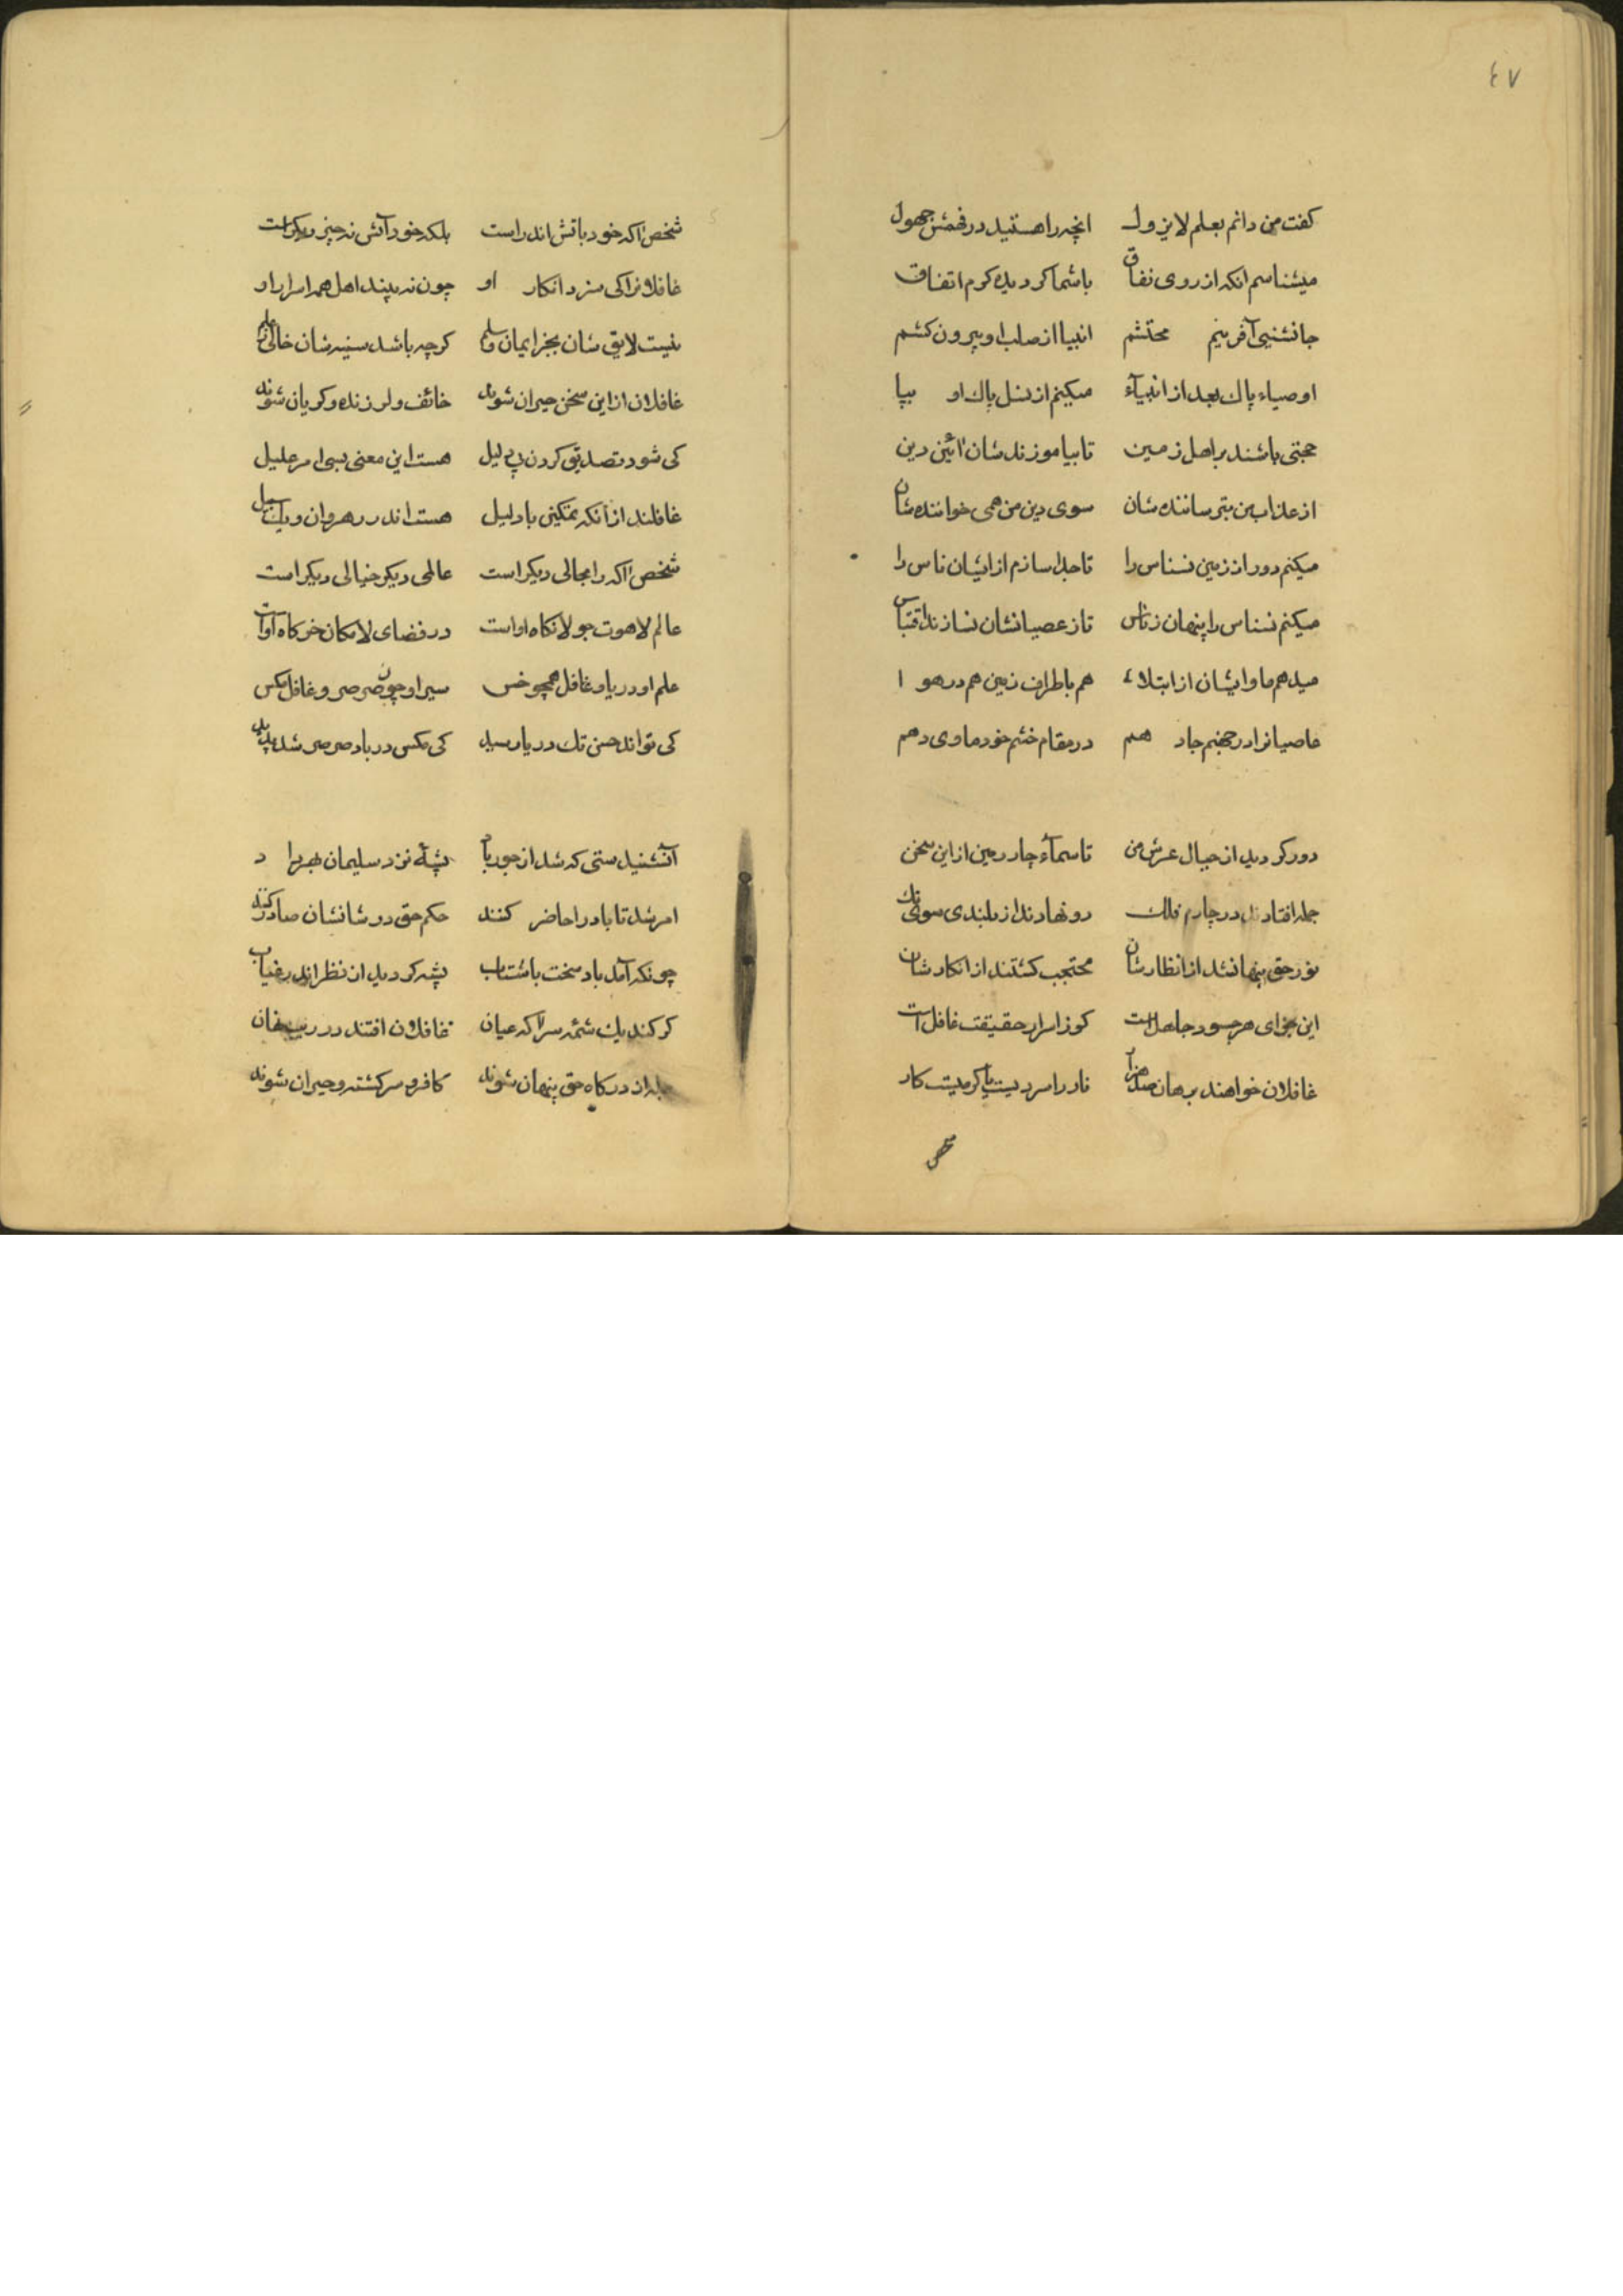 ٤٧
کفت من دانم بعلم لایزول انچه را هستید در فهمش جهول
میشناسم انکه از روی نفاق باشما کردیده کرم اتفاق
جانشینی آفرینم محتشم انبیا از صلب او بیرون کشم
اوصیاء پاك بعد از انبیآء میکنم از نسل پاك او بپا
حجتی باشند بر اهل زمین تا بیاموزند شان ائین دین
از عذاب من بترسانندشان سوی دین من همی خوانندشان
میکنم دور از زمین نسناس را تا جدا سازم از ایشان ناس را
میکنم نسناس را پنهان زناس تا ز عصیانشان نسازند اقتباس
میدهم ماوایشان از ابتلاء هم باطراف زمین هم در هوا
عاصیانرا در جهنم جا دهم در مقام خشم خود ماوی دهم
دور کردید از حیال عرش من تا سمآء چار رمین از این سخن
جمله افتادند در چارم فلك رو نهادند از بلندی سوی تك
نور حق پنهانشد از انظارشان محتجب کشتند از انکارشان
این جزای هر جسور جاهل است کوز اسرار حقیقت غافل است
غافلان خواهند برهان صد هزار نار را سردیست یا کرمیت کار
شخص
شخص اکه خود باتش اندر است بلکه خود آتش نه چیز دیکر است
غافلانرا کی سزد انکار او چون نه بیند اهل همه اسرار او
نیست لایق شان بجز ایمان و سلم کرچه باشد سینه شان خالی ز علم
غافلان از این سخن حیران شوند خائف و لرزنده و کریان شوند
کی شود تصدیق کردن بی لیل هست این معنی بسی امر علیل
غافلند از آنکه تمکینی با دلیل هست اندر رهروان و یك سبیل
شخص اکه را مجالی دیکر است عالمی دیکر خیالی دیکر است
عالم لاهوت جولانکاه او است در فضای لامکان خرکاه او است
علم او دریا و غافل همچو خس سیر او چون صرصر و غافل مکس
کی تواند حسن تك دریا رسید کی مکس در باد صرصر شد پدید
آنشنیدستی که شد از جور باد پشهٔ نزد سلیمان بهر داد
امر شد تا باد را حاضر کنند حکم حق در شانشان صادر کنند
چونکه آمد باد سخت باشتاب پشه کردید از نظر اندر غیاب
کر کند یك شمّه سرّ اکه عیان غافلان افتند در
جمله از درکاه حق پنهان شوند کافر و سرکشته و حیران شوند